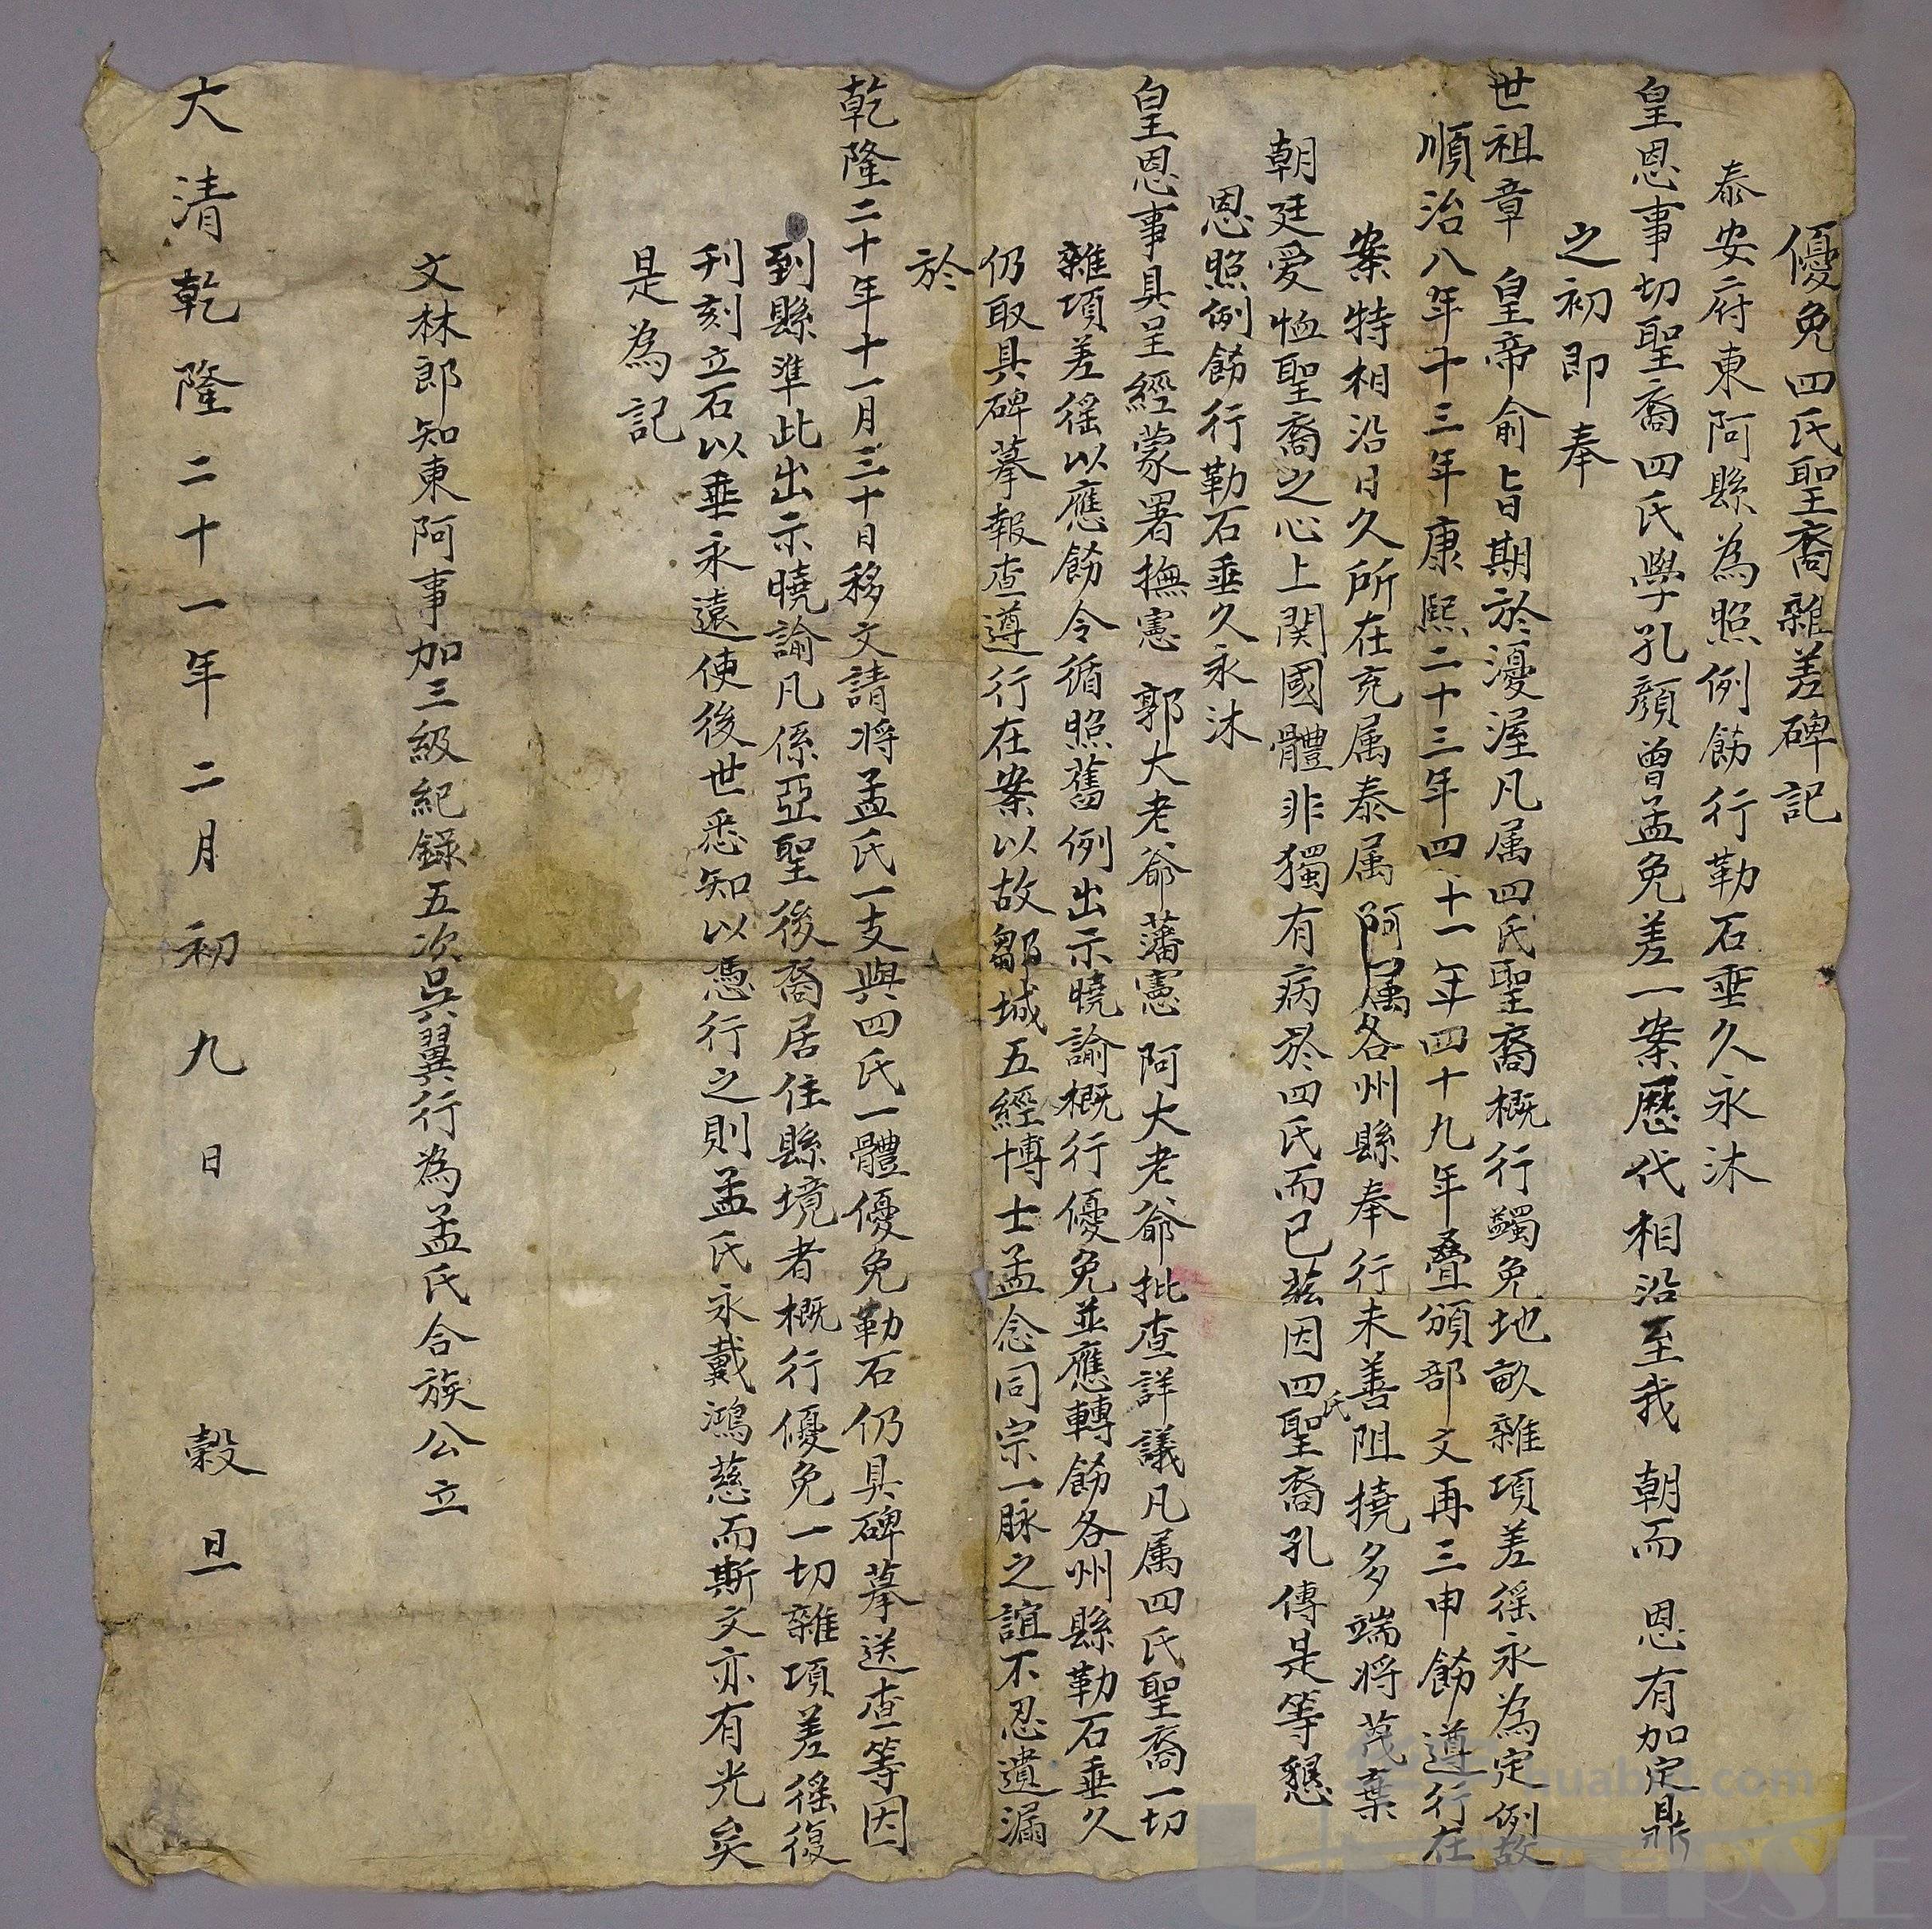 優免四氏聖裔雜差碑記
泰安府東阿縣為照例飭行勒石垂久永沐
皇恩事切聖裔四氏學孔顏曾孟免差一案歷代相沿至我 朝而 恩有加定鼎
之初即奉
世祖章 皇帝俞旨期於漫渥凡属四氏聖裔概行蠲免地畝雜項差徭永為定例故
順治八年十三年康熙二十三年四十一年四十九年疊頒部文再三申飭遵行在
案特相沿日久所在充属泰属阿属各州縣奉行未善阻撓多端將茂棄
朝廷愛恤聖裔之心上関國體非獨有病於四氏而已茲因四氏聖裔孔傳是等懇
恩照例飭行勒石垂久永沐
皇恩事具呈經蒙署撫憲 郭大老爺藩憲 阿大老爺批查詳議凡属四氏聖裔一切
雜項差徭以應飭令循照舊例出示曉諭概行優免並應轉飭各州縣勒石垂久
仍取具碑摹報查遵行在案以故鄒城五經博士孟念同宗一脉之誼不忍遺漏
於
乾隆二十年十一月三十日移文請將孟氏一支與四氏一體優免勒石仍具碑摹送查等因
到縣準此出示曉諭凡係亞聖後裔居住縣境者概行優免一切雜項差徭復
刊刻立石以垂永遠使後世悉知以憑行之則孟氏永戴鴻慈而斯文亦有光矣
是為記
文林郎知東阿事加三級紀錄五次吳翼行為孟氏合族公立
大清乾隆二十一年二月初九日 穀旦
huabid.com
UNIVERSE